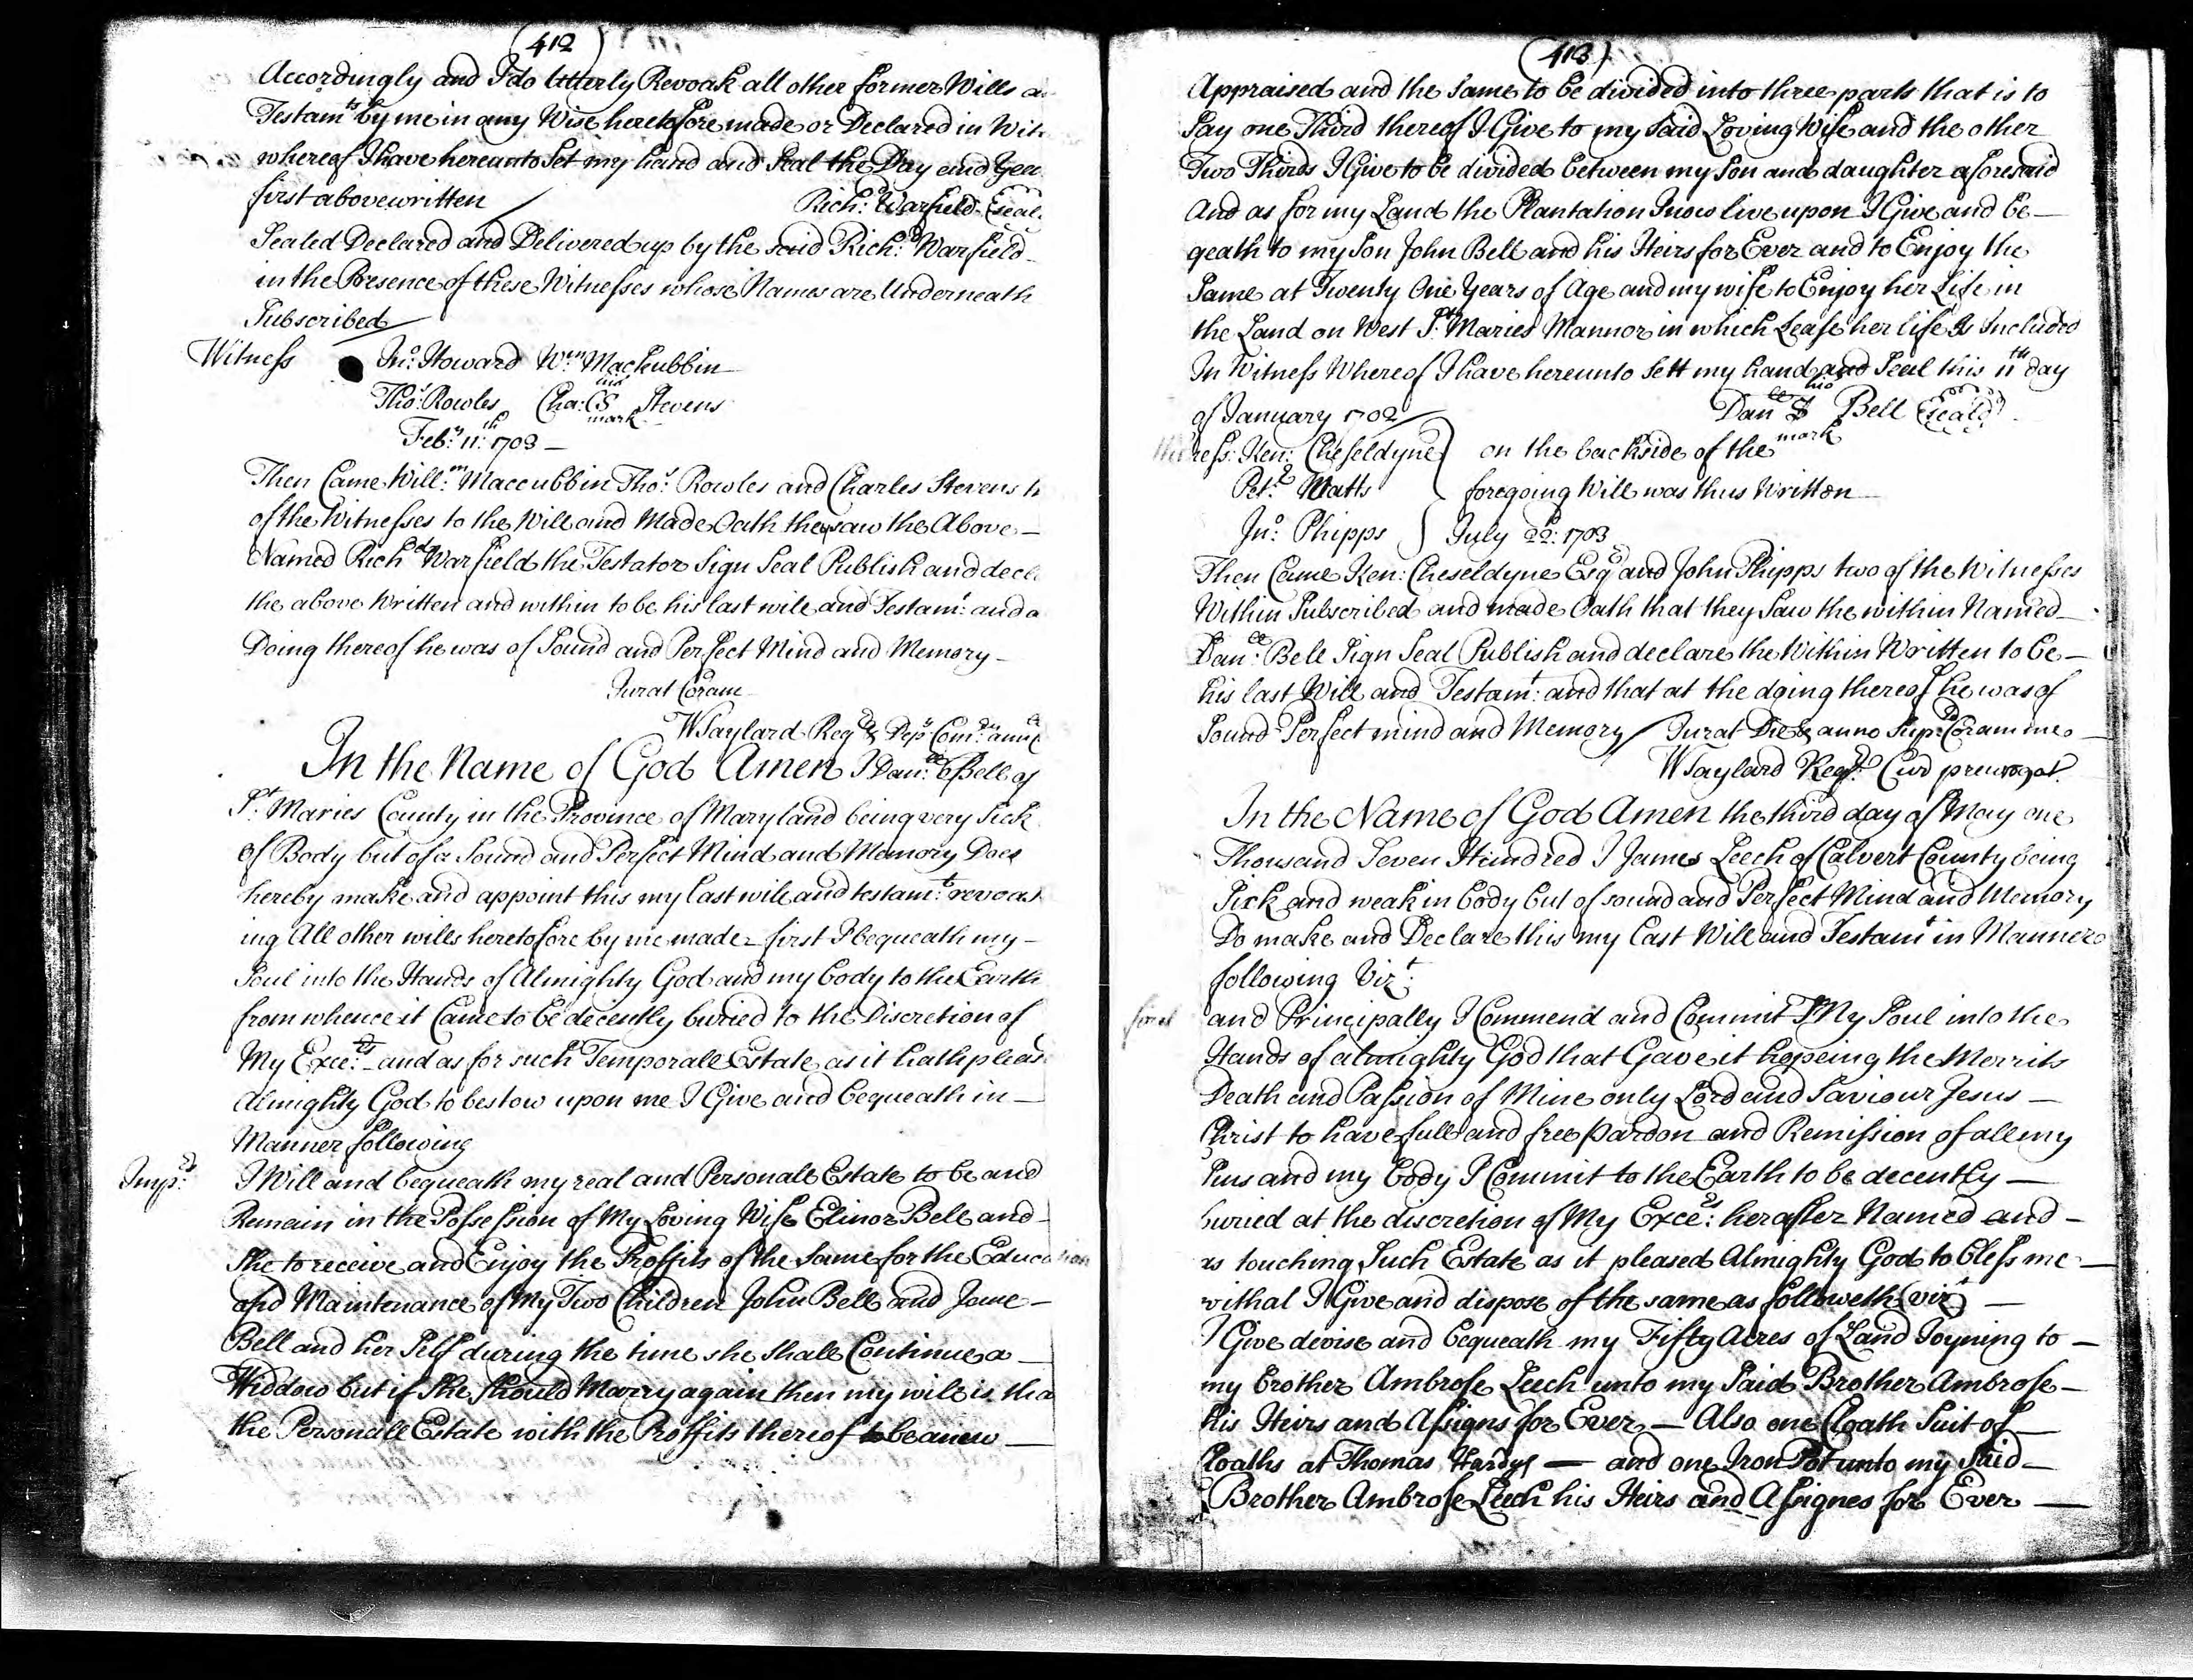 (412)
Accordingly and I do Utterly Revoak all other former Wills
Testamts by me in any Wise heretofore made or Declared in Wit
whereof I have hereunto Set my hand and Seal the Day and Yea
first above written Richd: Warfield Seal
Sealed Declared and Delivered up by the said Richd: Warfield
in the Presence of these Witnesses whose Names are Underneath
Subscribed
Witness Jno: Howard Wm Mackubbin
Thos: Rowles Cha: CS Stevens
his
mark
Febry 11th: 1703 —
Then Came Willm: Maccubbin Thos: Rowles and Charles Stevens
of the Witnesses to the Will and Made Oath they saw the Above —
Named Richd Warfield the Testator Sign Seal Publish and decl
the above Written and within to be his last will and Testamt: and a
Doing thereof he was of Sound and Perfect Mind and Memory —
Jurat Coram
WTaylard Regr & Depy Com
In the Name of God Amen I Danll: Bell of
St: Maries County in the Province of Maryland being very Sick
of Body but of a Sound and Perfect Mind and Memory Does
hereby make and appoint this my last will and testamt: revoak
ing All other wills heretofore by me made first I bequeath my —
Soul into the Hands of Almighty God and my body to the Earth
from whence it Came to be decently buried to the Discretion of
My Execrs: and as for such Temporall Estate as it hath pleasd
Almighty God to bestow upon me I Give and bequeath in —
Manner following
Imprs: I Will and bequeath my real and Personall Estate to be and
Remain in the Possession of My Loving Wife Elinor Bell and —
She to receive and Enjoy the Proffits of the Same for the Education
and Maintenance of My Two Children John Bell and Jane —
Bell and her Self during the time she Shall Continue a —
Widdow but if She Should Marry again then my will is tha
the Personall Estate with the Proffits thereof to be anew —
(413)
Appraised and the Same to be divided into three parts that is to
Say one Third thereof I Give to my Said Loving Wife and the other
Two Thirds I Give to be divided between my Son and daughter aforesaid
And as for my Land the Plantation I now live upon I Give and be —
qeath to my Son John Bell and his Heirs for Ever and to Enjoy the
Same at Twenty One Years of Age and my wife to Enjoy her Life in
the Land on West St: Maries Mannor in which Lease her life Is Included
In Witness Whereof I have hereunto Sett my hand and Seal this 11th day
of January 1702 Danll his Bell Seald
mark
Ken: Cheseldyne on the backside of the
Petr Watts foregoing Will was thus Written
Jno: Phipps July 22d: 1703
Then Came Ken: Cheseldyne Esqr and John Phipps two of the Witnesses
Within Subscribed and made Oath that they Saw the within Named
Danll: Bell Sign Seal Publish and declare the Within Written to be —
his last Will and Testamt: and that at the doing thereof he was of
Sound Perfect mind and Memory Jurat Die & anno Supra Coram me
WTaylard Regr: Cur prerogat.
In the Name of God Amen the third day of May one
Thousand Seven Hundred I James Leech of Calvert County being
Sick and weak in body but of sound and Perfect Mind and Memory
Do make and Declare this my Last Will and Testamt in Manner
following Vizt:
first and Principally I Commend and Commit My Soul into the
Hands of almighty God that Gave it hopeing the Merrits
Death and Passion of Mine only Lord and Saviour Jesus —
Christ to have full and free pardon and Remission of all my
Sins and my body I Commit to the Earth to be decently —
buried at the discretion of My Execrs: herafter Named and —
as touching Such Estate as it pleased Almighty God to bless me —
withal I Give and dispose of the same as followeth (vizt) —
I Give devise and bequeath my Fifty Acres of Land Joyning to —
my brother Ambrose Leech unto my Said Brother Ambrose —
his Heirs and Assigns for Ever — Also one Cloath Suit of —
Cloaths at Thomas Hardys — and one Iron Pot unto my Said —
Brother Ambrose Leech his Heirs and Assignes for Ever —